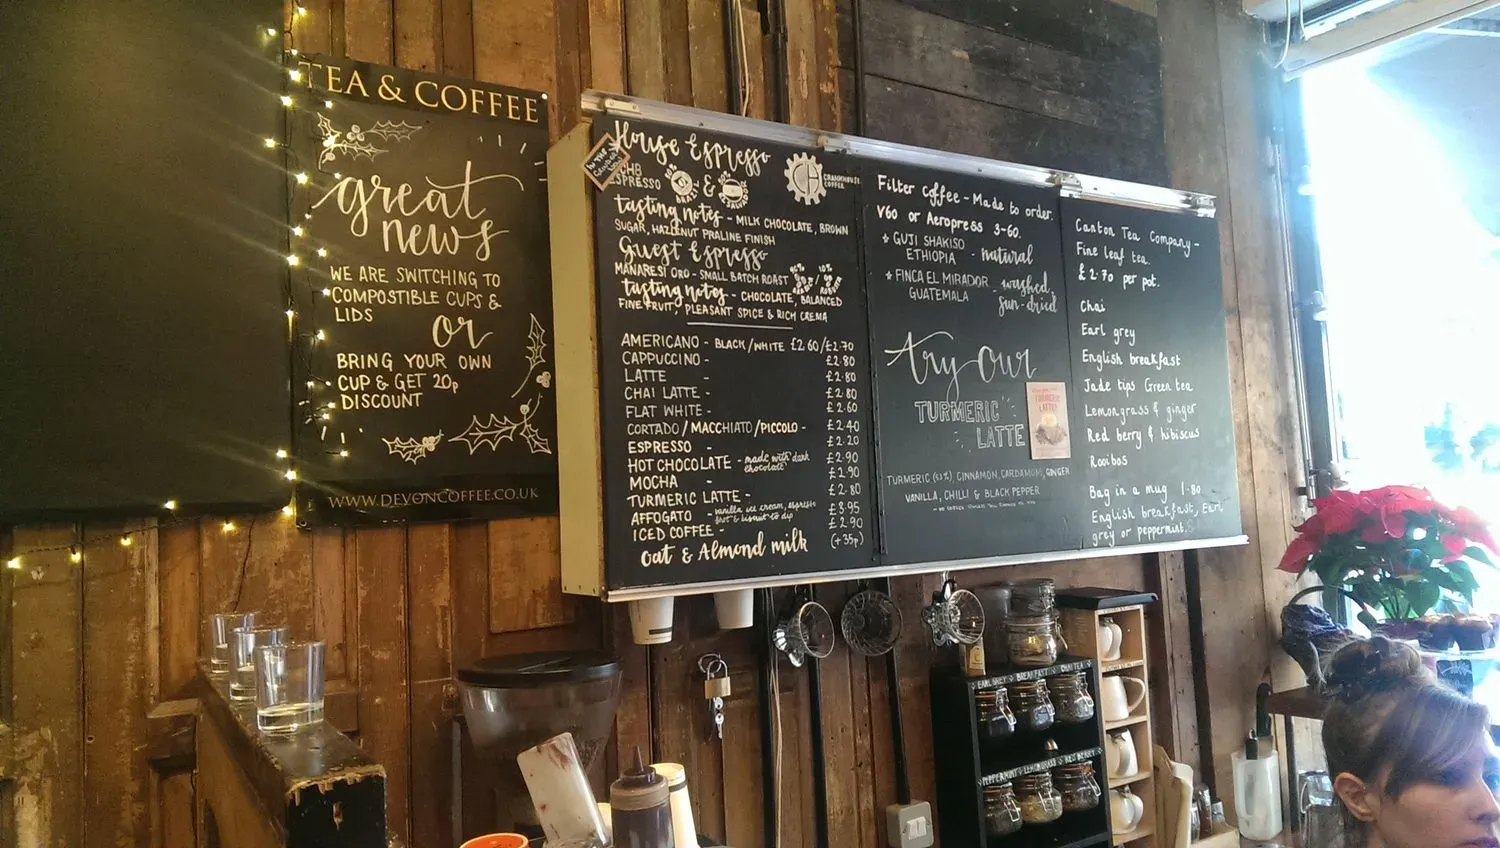 TEA & COFFEE
great
news
WE ARE SWITCHING TO
COMPOSTIBLE CUPS &
LIDS
or
BRING YOUR OWN
CUP & GET 20p
DISCOUNT
WWW.DEVONCOFFEE.CO.UK
IN THE
House Espresso
CHB
ESPRESSO
BRAZIL
&
CRANKHOUSE
COFFEE
tasting notes - MILK CHOCOLATE, BROWN
SUGAR, HAZELNUT PRALINE FINISH
Guest Espresso
MANARESI ORO - SMALL BATCH ROAST
tasting notes - CHOCOLATE, BALANCED
FINE FRUIT, PLEASANT SPICE & RICH CREMA
AMERICANO - BLACK/WHITE £2.60/£2.70
CAPPUCCINO - £2.80
LATTE - £2.80
CHAI LATTE - £2.80
FLAT WHITE - £2.60
CORTADO/MACCHIATO/PICCOLO - £2.40
ESPRESSO - £2.20
HOT CHOCOLATE - made with dark chocolate £2.90
MOCHA - £2.90
TURMERIC LATTE - £2.80
AFFOGATO - vanilla ice cream, espresso shot & biscuit to dip £3.95
ICED COFFEE £2.90
Oat & Almond milk (+35p)
Filter Coffee - Made to order.
V60 or Aeropress 3-60.
GUJI SHAKISO
ETHIOPIA - natural
FINCA EL MIRADOR - washed,
GUATEMALA sun-dried
try our
TURMERIC
LATTE
TURMERIC
LATTE
TURMERIC (63%), CINNAMON, CARDAMOM, GINGER
VANILLA, CHILLI & BLACK PEPPER
Canton Tea Company -
Fine leaf tea.
£2.70 per pot.
Chai
Earl grey
English breakfast
Jade tips Green tea
Lemongrass & ginger
Red berry & hibiscus
Rooibos
Bag in a mug 1.80
English breakfast, Earl
grey or peppermint.
EARL GREY BREAKFAST CHAI TEA
PEPPERMINT LEMONGRASS RED BERRY